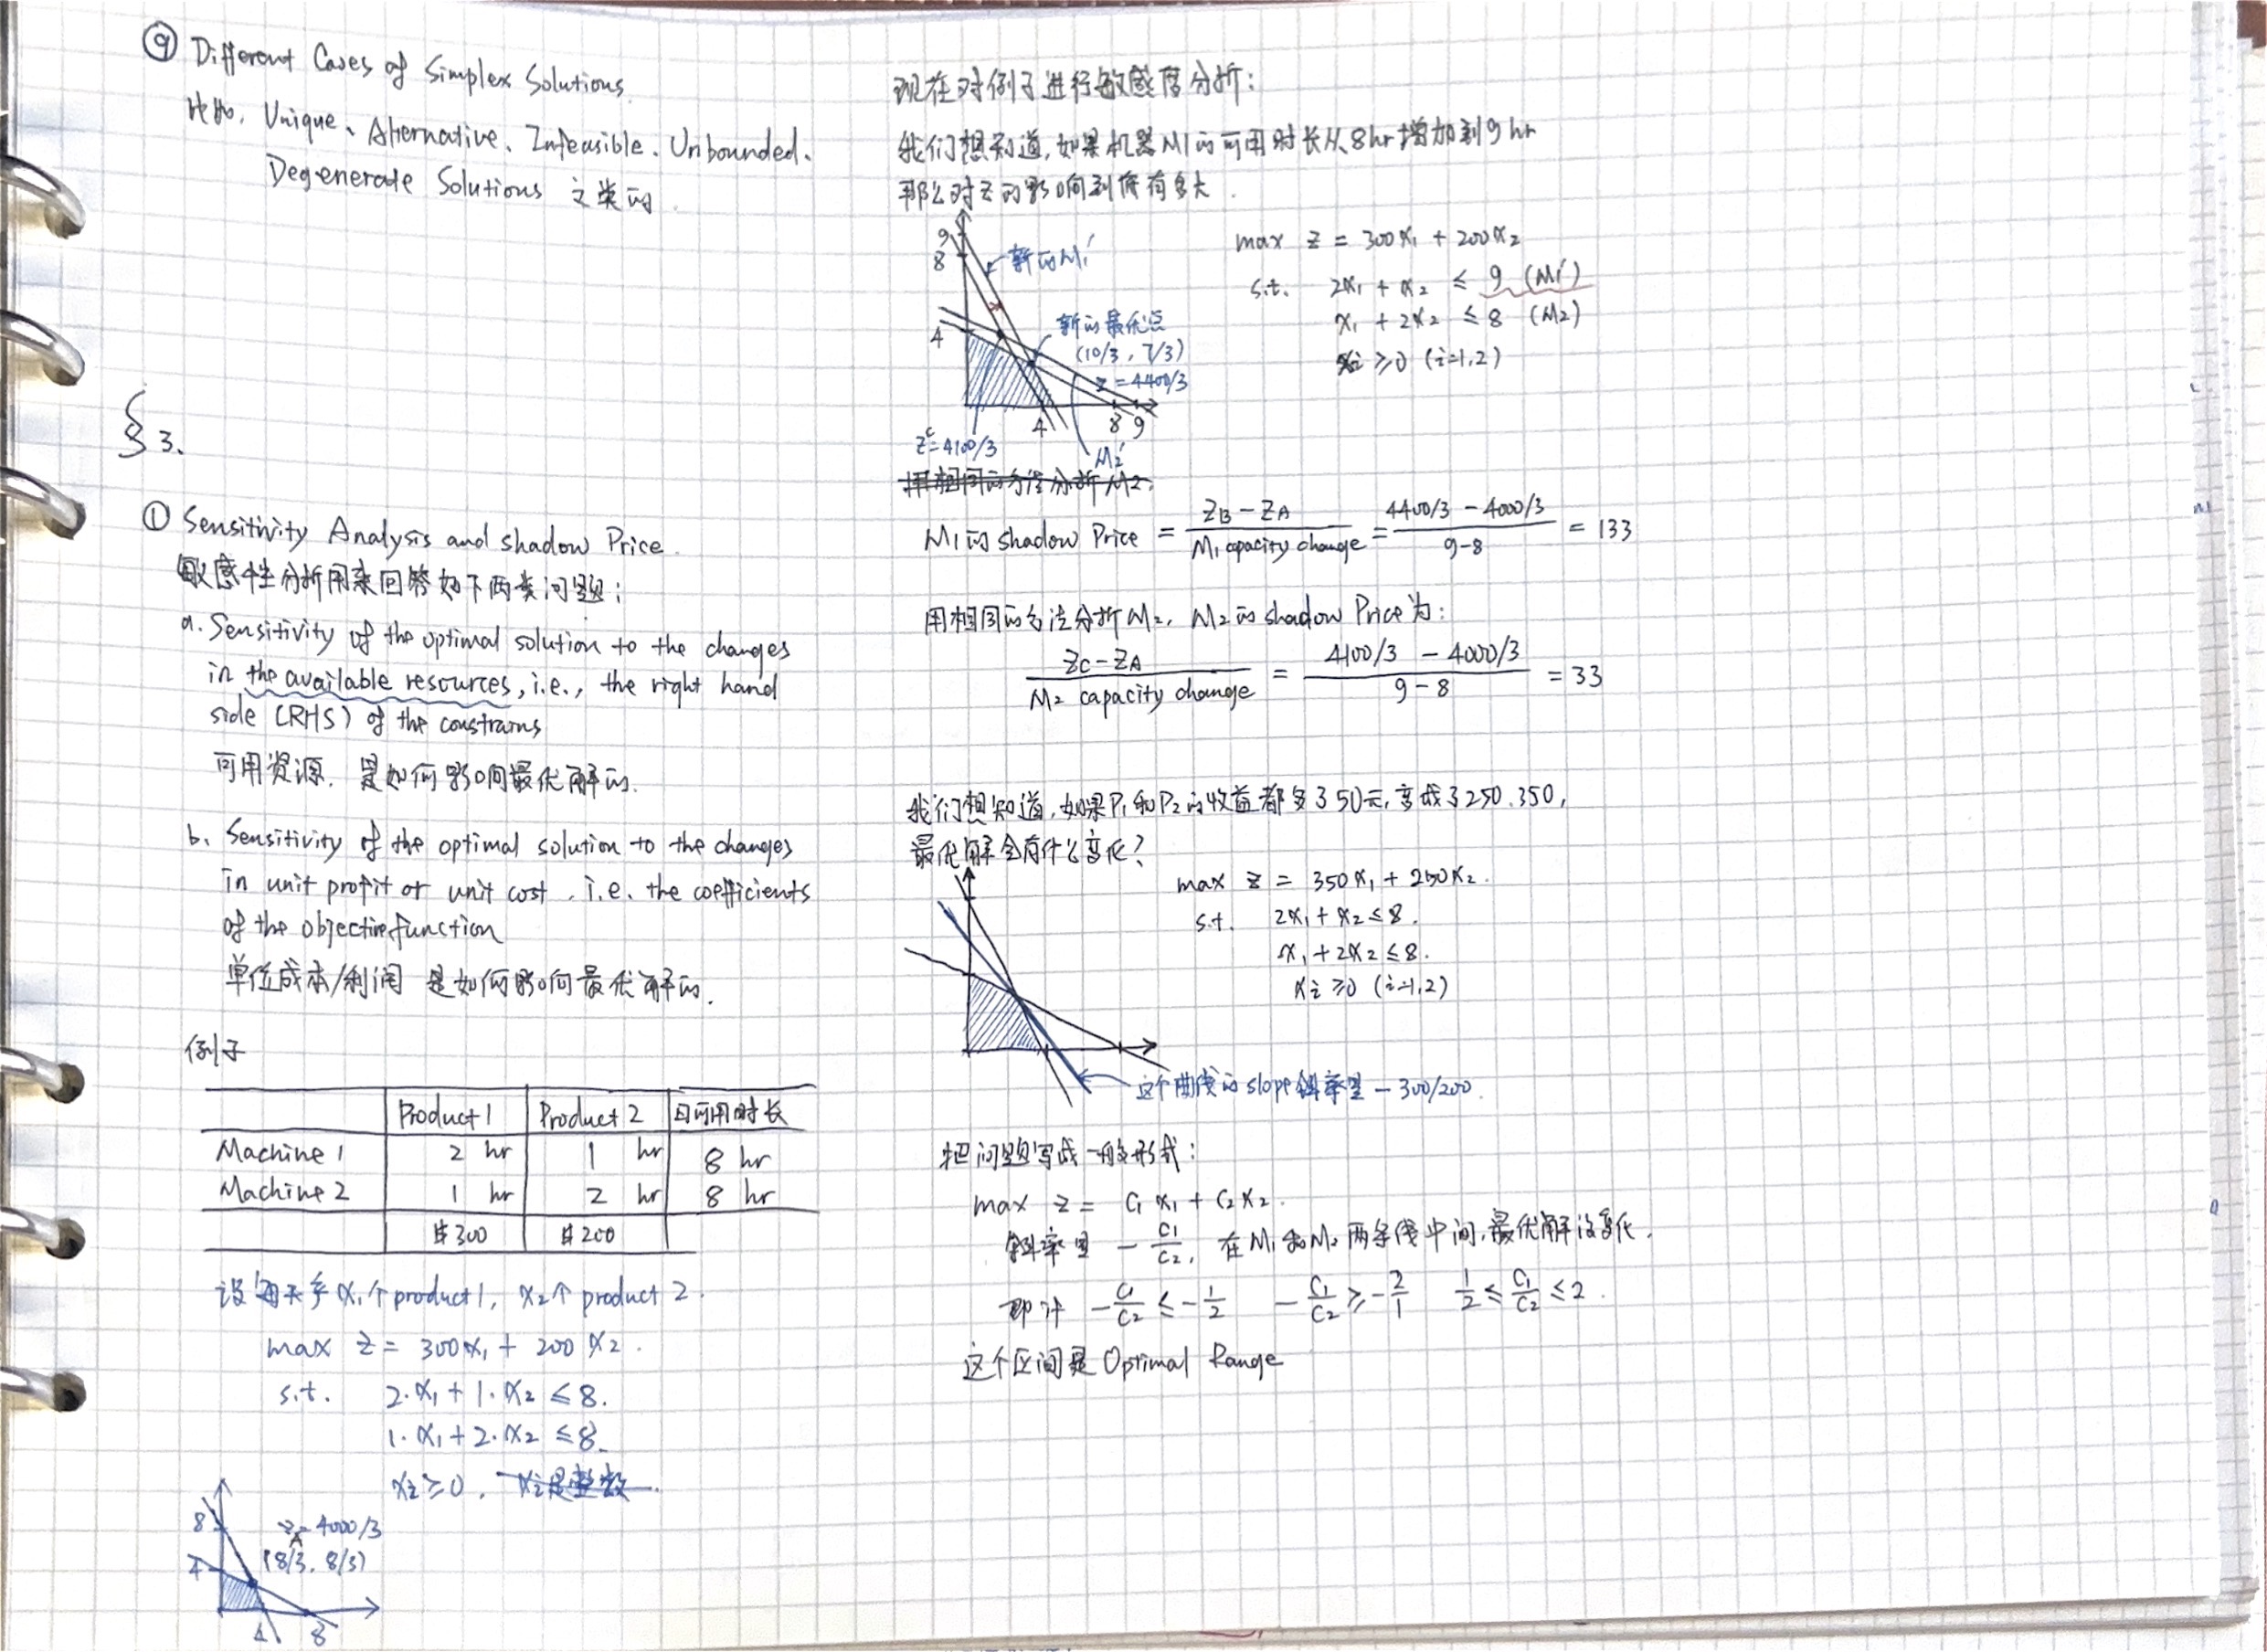 ⑨ Different Cases of Simplex Solutions.
比如, Unique、Alternative、Infeasible、Unbounded、
Degenerate Solutions 之类的.
§3.
① Sensitivity Analysis and shadow Price.
敏感性分析用来回答如下两类问题:
a. Sensitivity of the optimal solution to the changes
in the available resources, i.e., the right hand
side (RHS) of the constrains
可用资源, 是如何影响最优解的.
b. Sensitivity of the optimal solution to the changes
in unit profit or unit cost, i.e. the coefficients
of the objective function
单位成本/利润 是如何影响最优解的.
例子
Product 1 Product 2 日可用时长
Machine 1 2 hr 1 hr 8 hr
Machine 2 1 hr 2 hr 8 hr
$300 $200
设每天产 x₁个product1, x₂个 product 2.
max z = 300x₁ + 200 x₂.
s.t. 2·x₁ + 1·x₂ ≤ 8.
1·x₁ + 2·x₂ ≤ 8.
xi ≥ 0, xi是整数.
8 z = 4000/3
A
4 (8/3, 8/3)
4 8
现在对例子进行敏感度分析:
我们想知道, 如果机器M1的可用时长从8hr增加到9hr
那么对z的影响到底有多大.
9
8 新的M₁'
4 新的最优点
(10/3, 7/3)
z = 4400/3
4 8 9
zᶜ=4100/3 M₂'
max z = 300x₁ + 200x₂
s.t. 2x₁ + x₂ ≤ 9 (M1')
x₁ + 2x₂ ≤ 8 (M2)
xi ≥0 (i=1,2)
用相同的方法分析M2.
M₁的shadow Price = (Z_B - Z_A)/(M₁ capacity change) = (4400/3 - 4000/3)/(9-8) = 133
用相同的方法分析M₂, M₂的shadow Price为:
(Z_C - Z_A)/(M₂ capacity change) = (4100/3 - 4000/3)/(9-8) = 33
我们想知道, 如果P₁和P₂的收益都多了50元, 变成了250、350,
最优解会有什么变化?
max z = 350x₁ + 250x₂.
s.t. 2x₁ + x₂ ≤ 8.
x₁ + 2x₂ ≤ 8.
xi ≥0 (i=1,2)
这个曲线的slope斜率是 -300/200.
把问题写成一般形式:
max z = C₁x₁ + C₂x₂.
斜率是 -C₁/C₂, 在M₁和M₂两条线中间, 最优解没变化.
-C₁/C₂ ≤ -1/2 -C₁/C₂ ≥ -2/1 1/2 ≤ C₁/C₂ ≤ 2.
这个区间是 Optimal Range